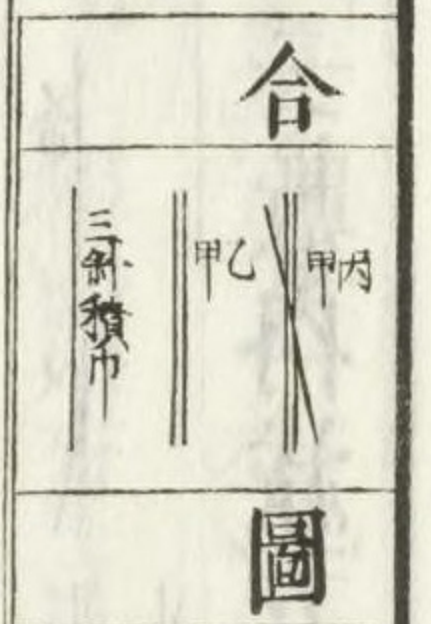 合
甲丙
甲乙
三斜積巾
圖